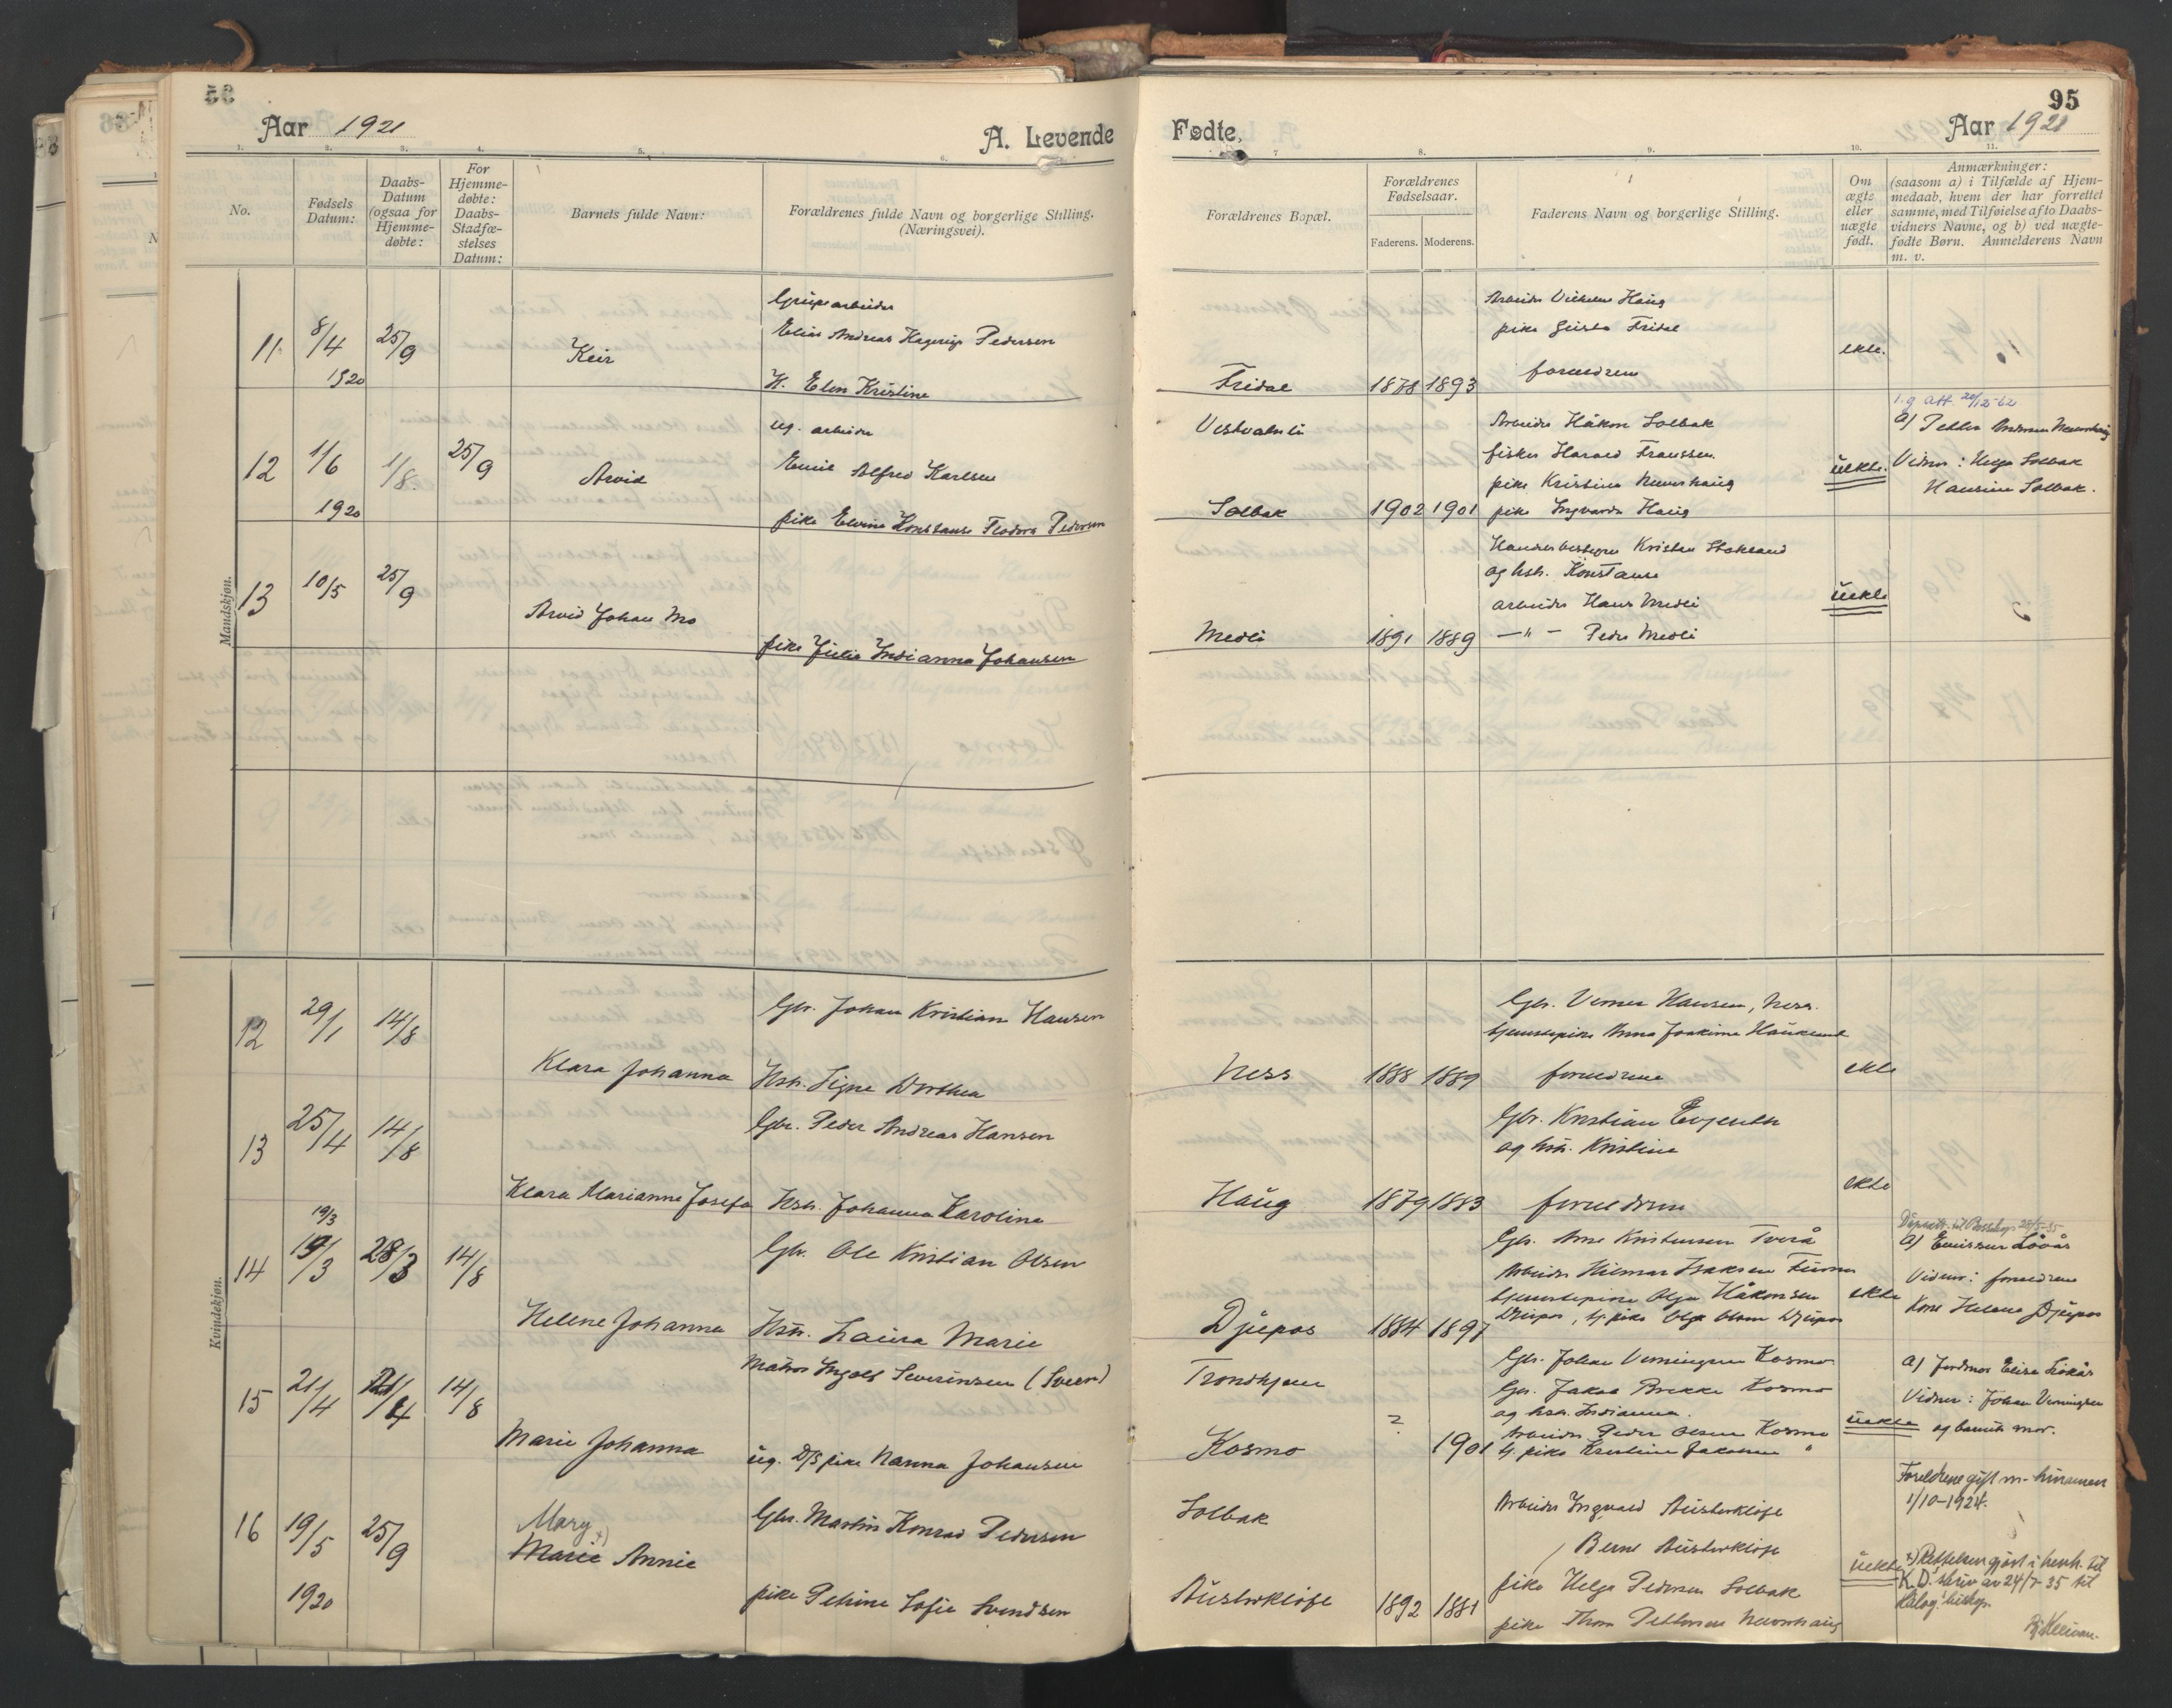 56
Aar 1921
A. Levende
Fødte,
Aar 1921
95
1. 2. 3. 4. 5. 6. 7 8. 9. 10. 11.
No.
Fødsels Datum:
Daabs-
Datum
(ogsaa for
Hjemme-
døbte:
For
Hjemme-
døbte:
Daabs-
Stadfæ-
stelses
Datum:
Barnets fulde Navn:
Forældrenes fulde Navn og borgerlige Stilling.
(Næringsvei).
Forældrenes Bopæl.
Forældrenes
Fødselsaar.
Faderens. Moderens.
Faderens Navn og borgerlige Stilling.
Om
ægte
eller
uægte
født.
Anmærkninger:
(saasom a) i Tilfælde af Hjem-
medaab, hvem der har forrettet
samme, med Tilføielse af to Daabs-
vidners Navne, og b) ved uægte-
fødte Børn. Anmelderens Navn
m. v.
Mandskjøn.
11 8/4 1920 25/9
Keir
Elias Andreas Pedersen
H. Elen Kristine
Fridal 1878 1893
Arbeider Vilhelm Haug
pike Fridal
foreldrene
ekte.
12 1/6 1920 1/8 25/9
Arvid
ug. arbeider
Emil Alfred Karlsen
pike Elvine Konstanse Teodora Pedersen
Solbak 1902 1901
Arbeider Håkon Solbak
fisker Harald Franssen
pike Kristine Neverhaug
pike Ingvarda Haug
uekte.
a) Petter Neverhaug
Vidner: Helga Solbak
Hansine Solbak.
13 10/5 25/9
Arvid Johan Mo
pike Julie Indianna Johansen
Medli 1891 1889
Kristen Stokland
og hstr. Konstanse
arbeider Hans Medli
—"— Peder Medli
uekte
Kvindekjøn.
12 29/1 14/8
Klara Johanna
Gbr. Johan Kristian Hansen
Hstr. Signe Dorthea
Ness 1888 1889
Gbr. Verner Hansen, Ness.
tjenestepike Anna Joakime Hauklund
foreldrene
ekte
13 25/4 14/8
Klara Marianne Josefa
Gbr. Peder Andreas Hansen
Hstr. Johanna Karoline
Haug 1879 1883
Gbr. Kristian
og hstr. Kristine
foreldrene
ekte
14 19/3 19/3 28/3 14/8
Helene Johanna
Gbr. Ole Kristian Olsen
Hstr. Laura Marie
Djupos 1884 1897
Gbr. Arne Kristensen Tverå
Arbeider Hilmar Isaksen
tjenestepike Olga Håkonsen
Djupos, tj. pike Olga Olsen Djupos
ekte
a) Løvås
Vidner: foreldrene
Kone Helene Djupos
15 21/4 21/4 14/8
Marie Johanna
Matros Ingolf Severinsen (Sveen)
ug. D/S pike Nanna Johansen
Trondhjem
Kosmo ? 1901
Gbr. Johan Verningsen Kosmo
Gbr. Jakob Brekke Kosmo
og hstr. Indianna.
Arbeider Peder Olsen Kosmo
tj. pike Kristine Jakobsen "
uekte
a) Jordmor Elise Liokår
Vidner: Johan Verningsen
og barnets mor.
16 19/5 1920 25/9
Mary x)
Marie Annie
Gbr. Martin Konrad Pedersen
pike Petrine Sofie Svendsen
Solbak
Austerkløft 1892 1881
Arbeider Ingvald Austerkløft
Bernt Austerkløft
pike Helga Pedersen Solbak
pike Thora Pettersen Neverhaug
uekte
Foreldrene gift m. hinannen
1/10-1924.
x) Rettelsen gjort i henh. til
K. D. skriv av 24/7-35 til
Hålog. biskop